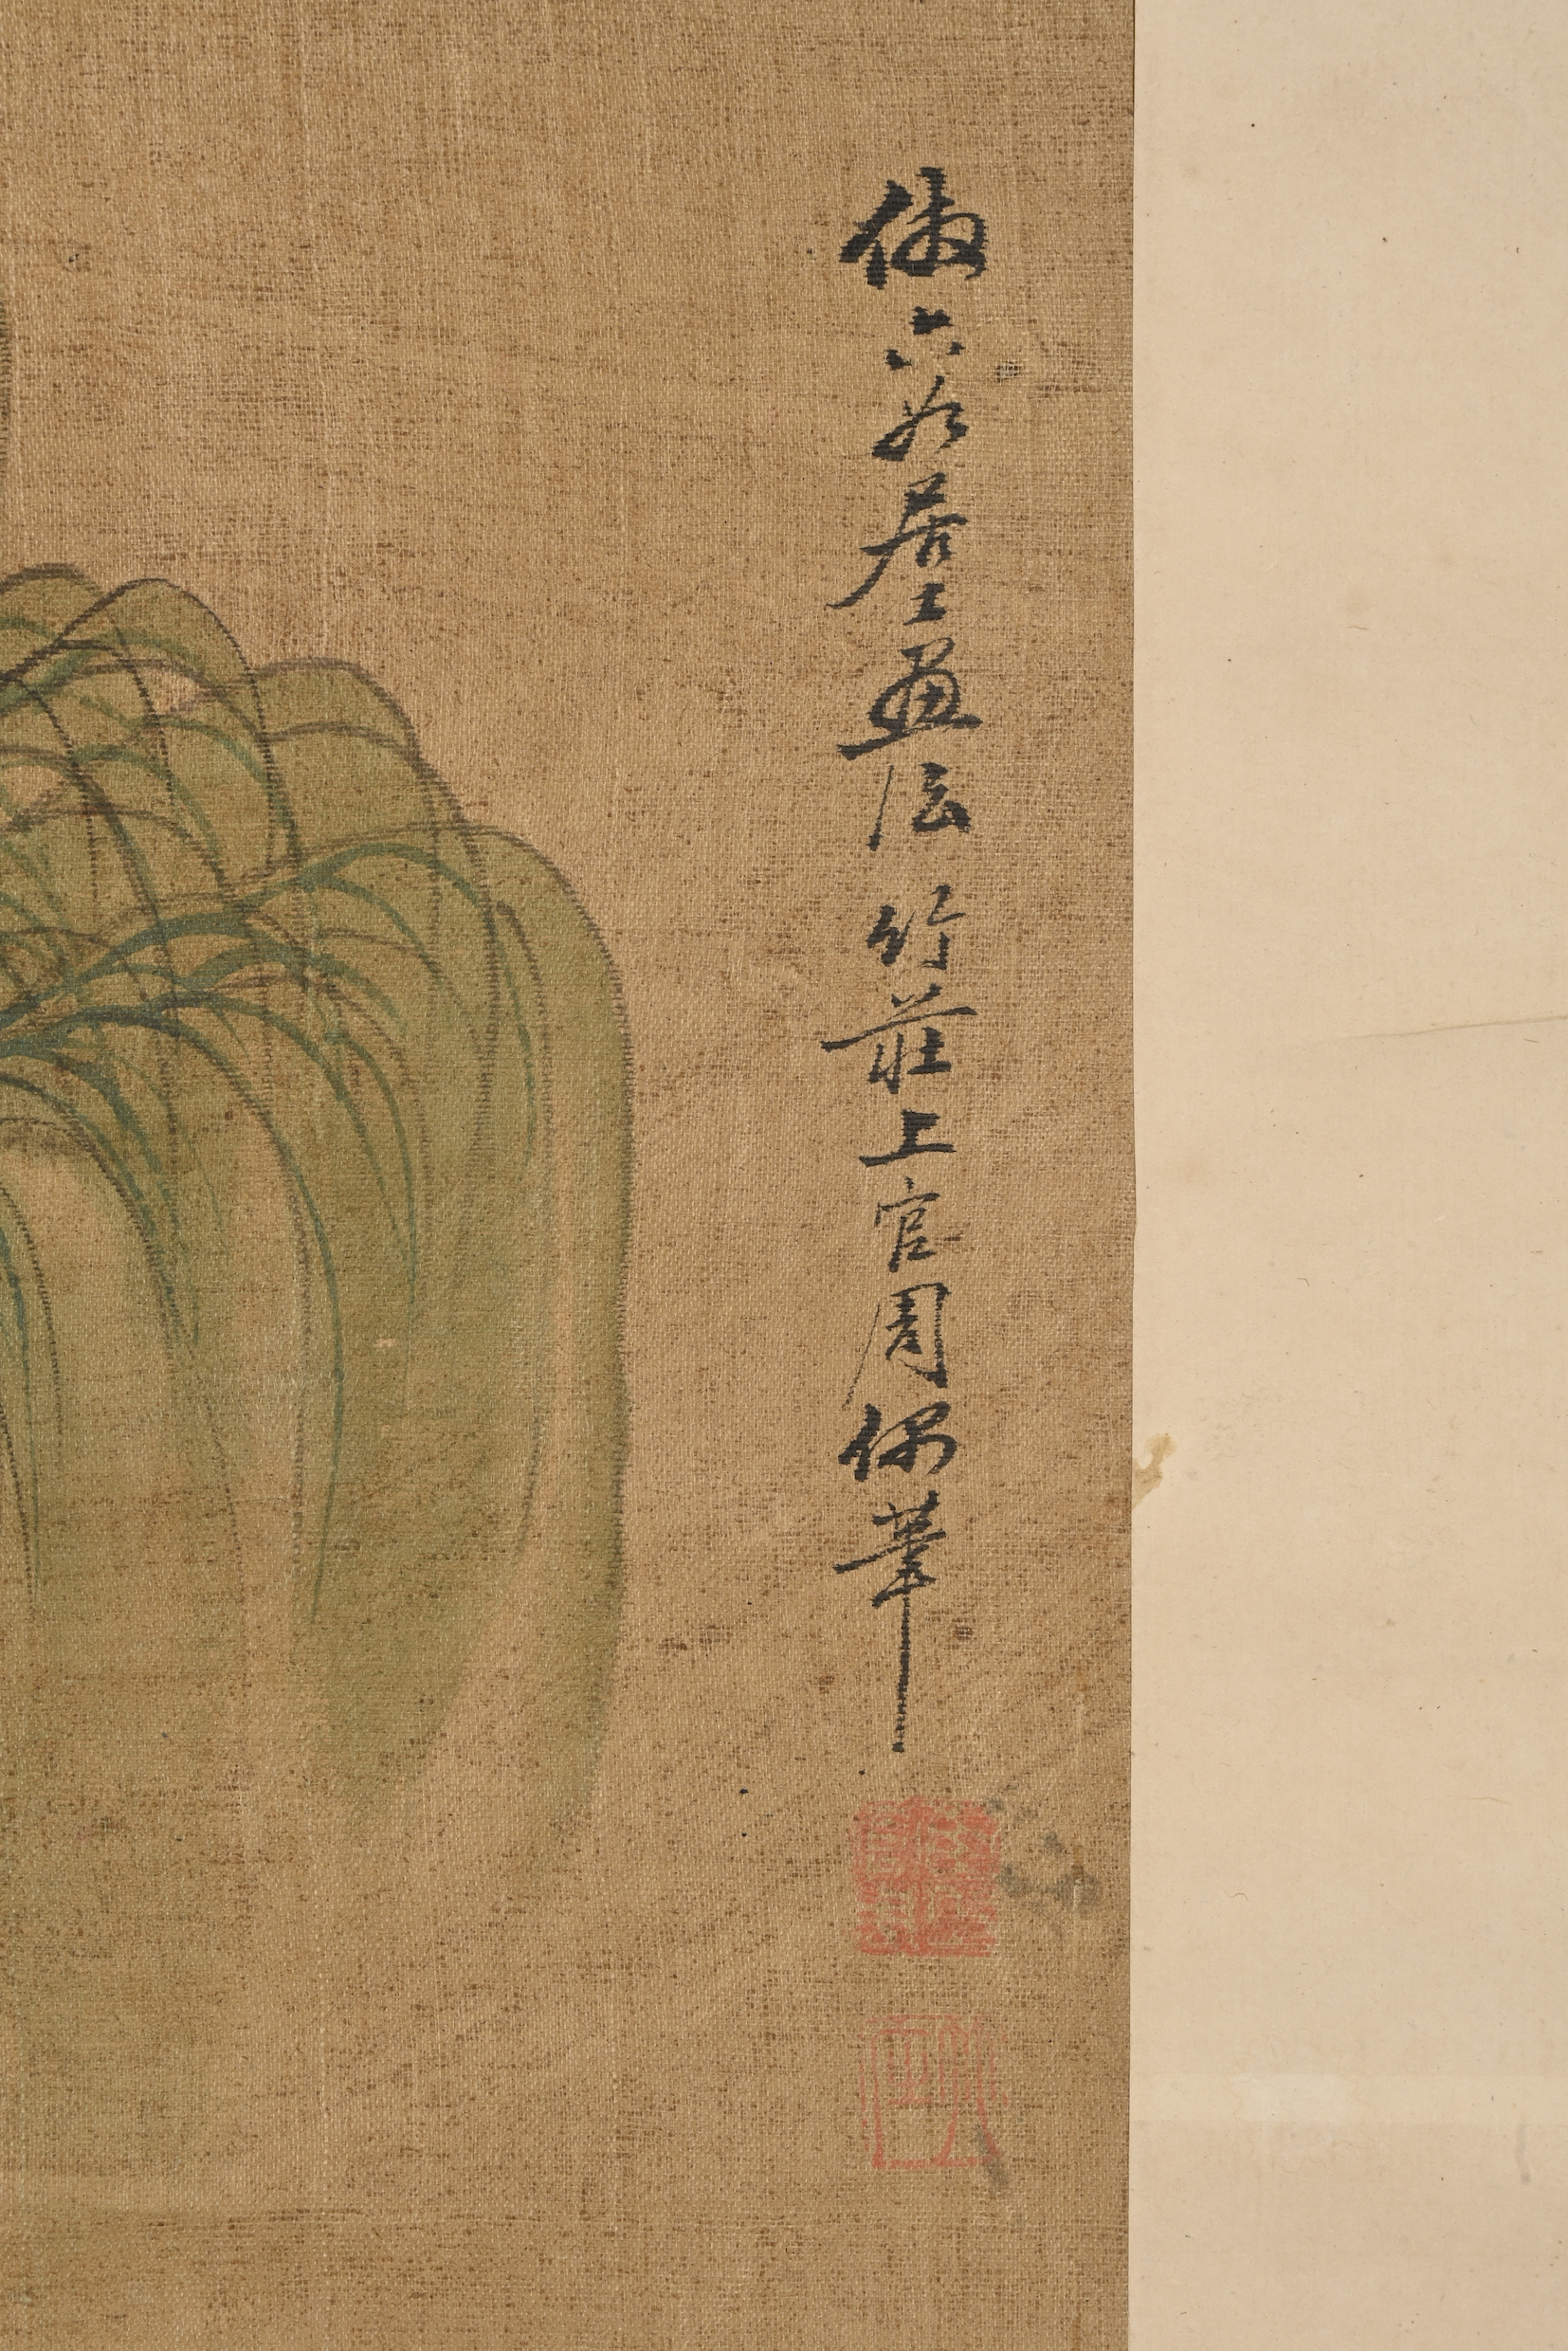 倣六如居士畫法竹莊上官周偶筆